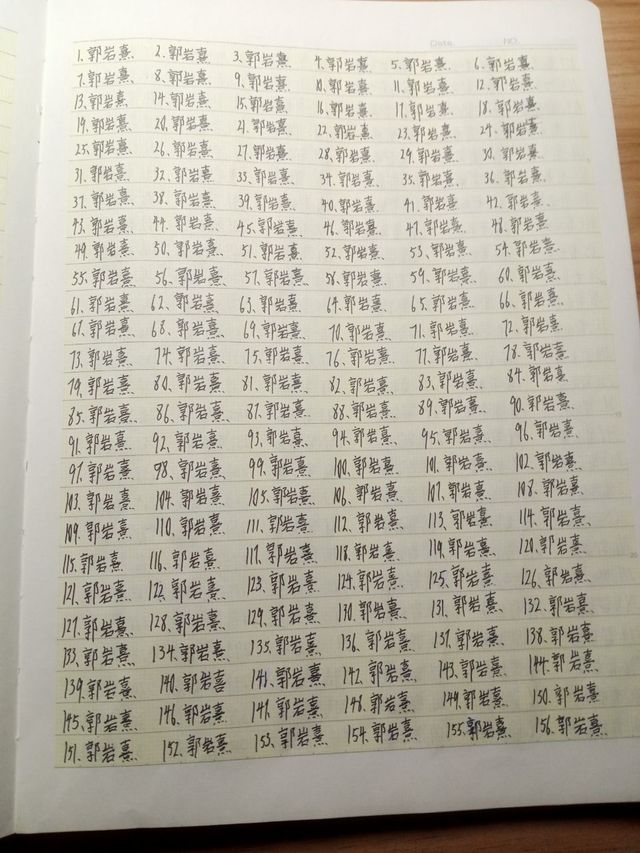 Date. NO.
1.郭岩熹 2.郭岩熹 3.郭岩熹 4.郭岩熹 5.郭岩熹 6.郭岩熹
7.郭岩熹 8.郭岩熹 9.郭岩熹 10.郭岩熹 11.郭岩熹 12.郭岩熹
13.郭岩熹 14.郭岩熹 15.郭岩熹 16.郭岩熹 17.郭岩熹 18.郭岩熹
19.郭岩熹 20.郭岩熹 21.郭岩熹 22.郭岩熹 23.郭岩熹 24.郭岩熹
25.郭岩熹 26.郭岩熹 27.郭岩熹 28.郭岩熹 29.郭岩熹 30.郭岩熹
31.郭岩熹 32.郭岩熹 33.郭岩熹 34.郭岩熹 35.郭岩熹 36.郭岩熹
37.郭岩熹 38.郭岩熹 39.郭岩熹 40.郭岩熹 41.郭岩熹 42.郭岩熹
43.郭岩熹 44.郭岩熹 45.郭岩熹 46.郭岩熹 47.郭岩熹 48.郭岩熹
49.郭岩熹 50.郭岩熹 51.郭岩熹 52.郭岩熹 53.郭岩熹 54.郭岩熹
55.郭岩熹 56.郭岩熹 57.郭岩熹 58.郭岩熹 59.郭岩熹 60.郭岩熹
61.郭岩熹 62.郭岩熹 63.郭岩熹 64.郭岩熹 65.郭岩熹 66.郭岩熹
67.郭岩熹 68.郭岩熹 69.郭岩熹 70.郭岩熹 71.郭岩熹 72.郭岩熹
73.郭岩熹 74.郭岩熹 75.郭岩熹 76.郭岩熹 77.郭岩熹 78.郭岩熹
79.郭岩熹 80.郭岩熹 81.郭岩熹 82.郭岩熹 83.郭岩熹 84.郭岩熹
85.郭岩熹 86.郭岩熹 87.郭岩熹 88.郭岩熹 89.郭岩熹 90.郭岩熹
91.郭岩熹 92.郭岩熹 93.郭岩熹 94.郭岩熹 95.郭岩熹 96.郭岩熹
97.郭岩熹 98.郭岩熹 99.郭岩熹 100.郭岩熹 101.郭岩熹 102.郭岩熹
103.郭岩熹 104.郭岩熹 105.郭岩熹 106.郭岩熹 107.郭岩熹 108.郭岩熹
109.郭岩熹 110.郭岩熹 111.郭岩熹 112.郭岩熹 113.郭岩熹 114.郭岩熹
115.郭岩熹 116.郭岩熹 117.郭岩熹 118.郭岩熹 119.郭岩熹 120.郭岩熹
121.郭岩熹 122.郭岩熹 123.郭岩熹 124.郭岩熹 125.郭岩熹 126.郭岩熹
127.郭岩熹 128.郭岩熹 129.郭岩熹 130.郭岩熹 131.郭岩熹 132.郭岩熹
133.郭岩熹 134.郭岩熹 135.郭岩熹 136.郭岩熹 137.郭岩熹 138.郭岩熹
139.郭岩熹 140.郭岩熹 141.郭岩熹 142.郭岩熹 143.郭岩熹 144.郭岩熹
145.郭岩熹 146.郭岩熹 147.郭岩熹 148.郭岩熹 149.郭岩熹 150.郭岩熹
151.郭岩熹 152.郭岩熹 153.郭岩熹 154.郭岩熹 155.郭岩熹 156.郭岩熹